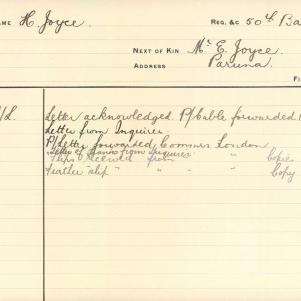 AME H. Joyce. REG. &c 50th Ba
NEXT OF KIN Mr E. Joyce.
ADDRESS Paruna.
FI
/L. Letter acknowledged. P/Cable forwarded
Letter from Inquirer
P/Letter forwarded Commrs London
Letter of thanks from Inquirer
Slips received from " " Copie
Further slip " " " " Copy